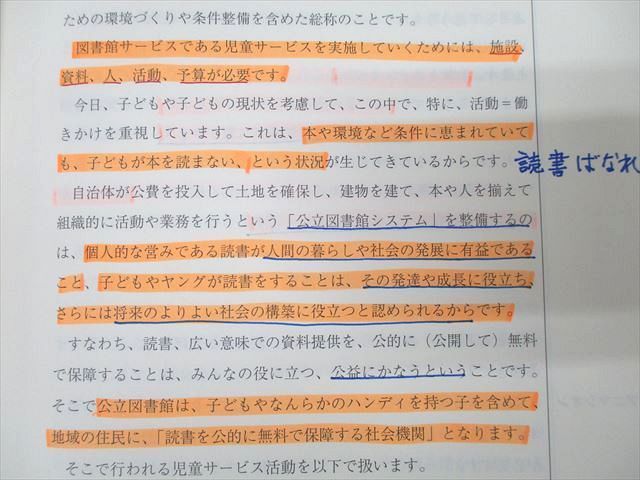 ための環境づくりや条件整備を含めた総称のことです。
図書館サービスである児童サービスを実施していくためには、施設、
資料、人、活動、予算が必要です。
今日、子どもや子どもの現状を考慮して、この中で、特に、活動＝働
きかけを重視しています。これは、本や環境など条件に恵まれていて
も、子どもが本を読まない、という状況が生じてきているからです。
読書ばなれ
自治体が公費を投入して土地を確保し、建物を建て、本や人を揃えて
組織的に活動や業務を行うという「公立図書館システム」を整備するの
は、個人的な営みである読書が人間の暮らしや社会の発展に有益である
こと、子どもやヤングが読書をすることは、その発達や成長に役立ち、
さらには将来のよりよい社会の構築に役立つと認められるからです。
すなわち、読書、広い意味での資料提供を、公的に（公開して）無料
で保障することは、みんなの役に立つ、公益にかなうということです。
そこで公立図書館は、子どもやなんらかのハンディを持つ子を含めて、
地域の住民に、「読書を公的に無料で保障する社会機関」となります。
そこで行われる児童サービス活動を以下で扱います。